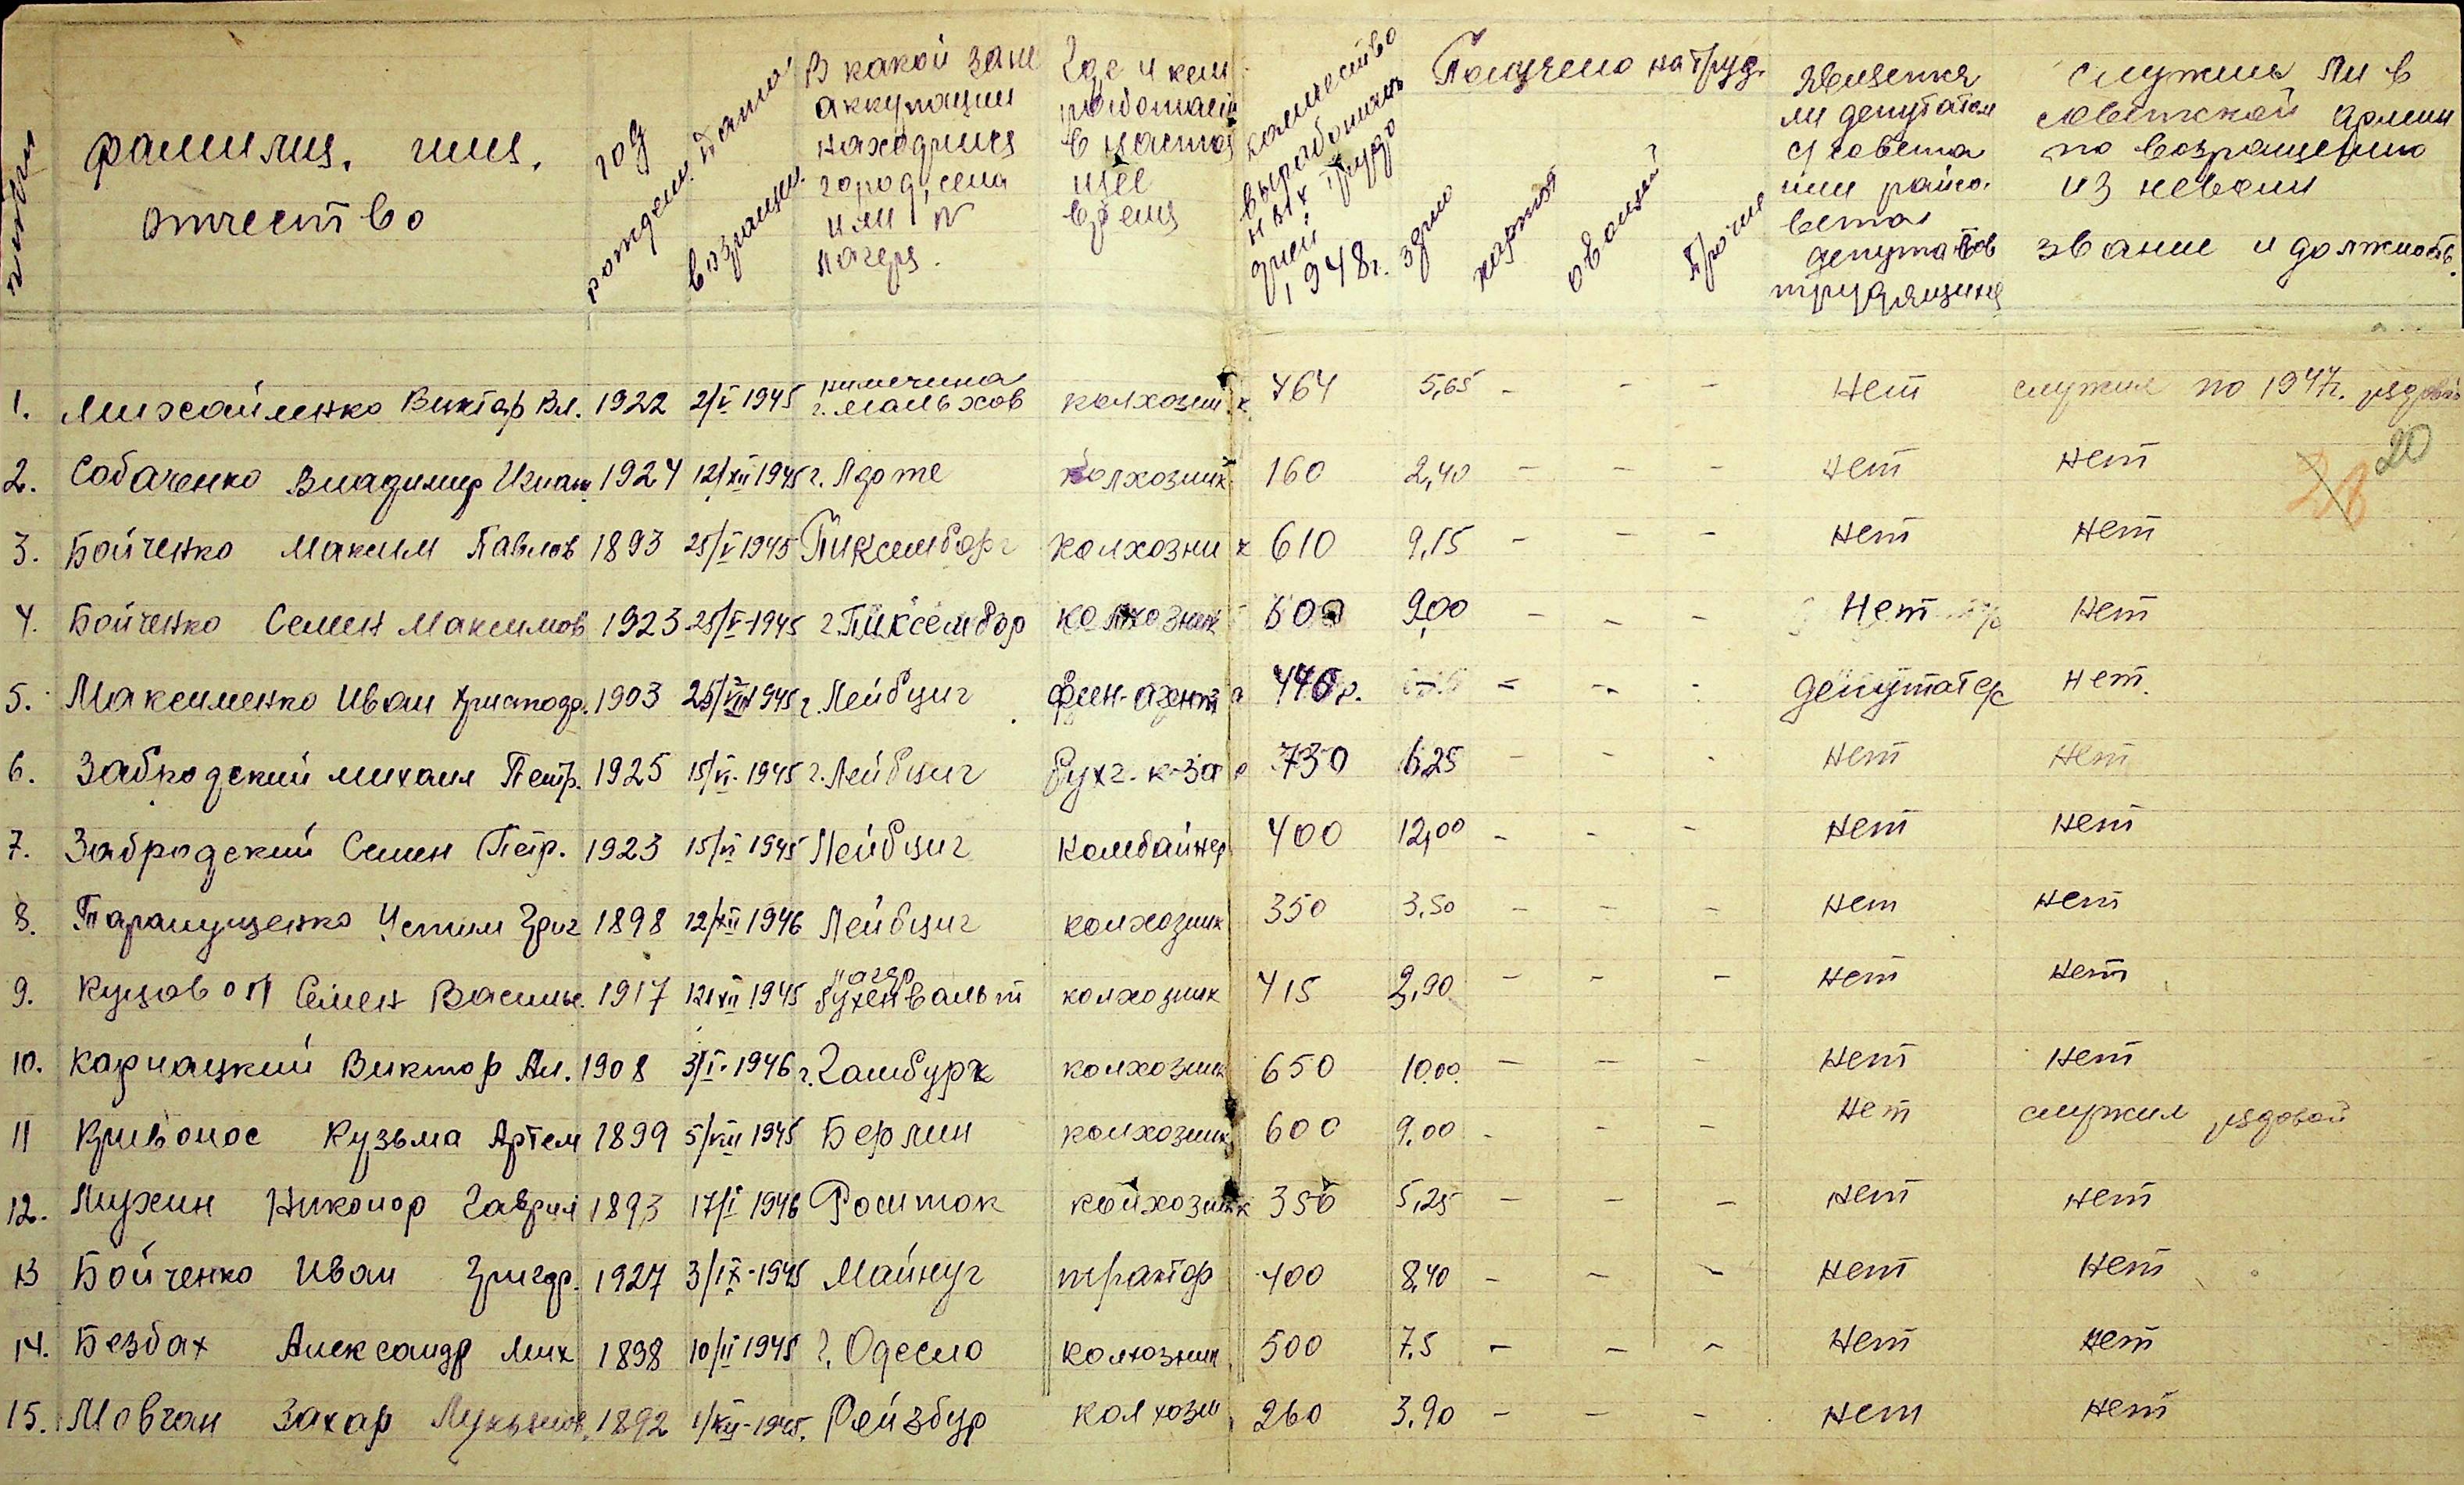 фамилия, имя, отчество
год рождения
дата возращен.
В какой зане аккупации находился город, села или № лагеря.
Где и кем работает в настоящее время
количество выработаных трудодней 1948г.
Получено на труд.
зерно
картоф
овощей
Прочие
Является ли депутатом с/совета или райсовета депутатов трудящихся
служил ли в советской армии по возращению из неволи звание и должность.
1. Михайленко Виктор Вл. 1922 2/V 1945 Нимечина г. Мальхов колхозник 464 5,65 - - - Нет служил по 1947г. рядовой
20
28
2. Собаченко Владимир Игнат 1924 12/XII 1945 г. колхозник 160 2,40 - - - Нет Нет
3. Бойченко Максим Павлов 1893 25/V 1945 Пиксемборг колхозник 610 9,15 - - - Нет Нет
4. Бойченко Семен Максимов 1923 25/V-1945 г. Пиксембор колхозник 600 9,00 - - - Нет Нет
5. Максименко Иван Христофр. 1903 25/VIII 1945 г. Лейбциг фин-агент 440р. - - - депутатер Нет.
6. Забродский михаил Петр. 1925 15/VI-1945 г. Лейбциг бухг. к-за 730 6,25 - - - Нет Нет
7. Забродский Семен Петр. 1923 15/VI 1945 Лейбциг Комбайнер 400 12,00 - - - Нет Нет
8. Устим Григ 1898 12/XII 1946 Лейбциг колхозник 350 3,50 - - - Нет Нет
9. Семен Василье 1917 12/XII 1945 лагер бухенвальт колхозник 415 2,90 - - - Нет Нет
10. Карнацкий Виктор Ал. 1908 3/I-1946 г. Гамбурк колхозник 650 10.00. - - - Нет Нет
11 Кривонос Кузьма Артем 1899 5/VIII 1945 Берлин колхозник 600 9,00 - - - Нет служил рядовой
12. Никонор Гаврил 1893 17/I 1946 Роситок колхозник 350 5,25 - - - Нет Нет
13 Бойченко Иван Григор. 1927 3/IX-1945 Майнуг трактор 400 8,40 - - - Нет Нет
14. Безбах Александр Мих 1898 10/II 1945 г. Одесно колхозник 500 7,5 - - - Нет Нет
15. Мовчан Захар Лукьянов. 1892 1/XII-1945. Рейзбур колхозн 260 3,90 - - - Нет Нет